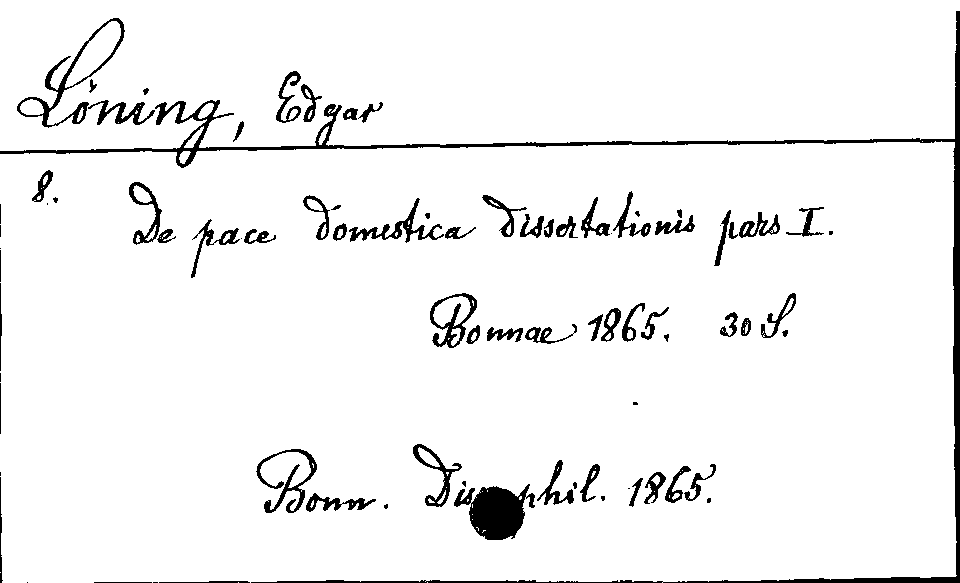 Löning, Edgar
8.
De pace domestica dissertationis pars I.
Bonnae 1865. 30 S.
Bonn. Diss. phil. 1865.